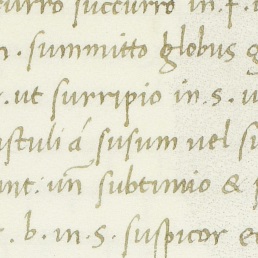 curro succurro in .f.
. summitto globus g
. ut surripio in .s. u
ustuli á susum uel su
unt. un̄ subtimio &
. b. in .s. suspicor et